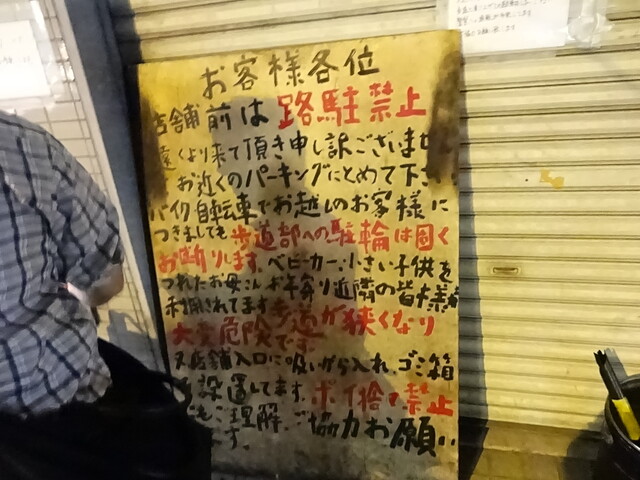 お客様各位
店舗前は路駐禁止
遠くより来て頂き申し訳ございませ
お近くのパーキングにとめて下さ
バイク自転車でお越しのお客様に
つきましても歩道部への駐輪は固く
お断りします。ベビーカー、小さい子供を
つれたお母さん お年寄り近隣の皆様が
利用されてます歩道が狭くなり
大変危険です
又店舗入口に吸いがら入れ、ゴミ箱
設置してます。ポイ捨て禁止
ご理解、ご協力お願い
ます。